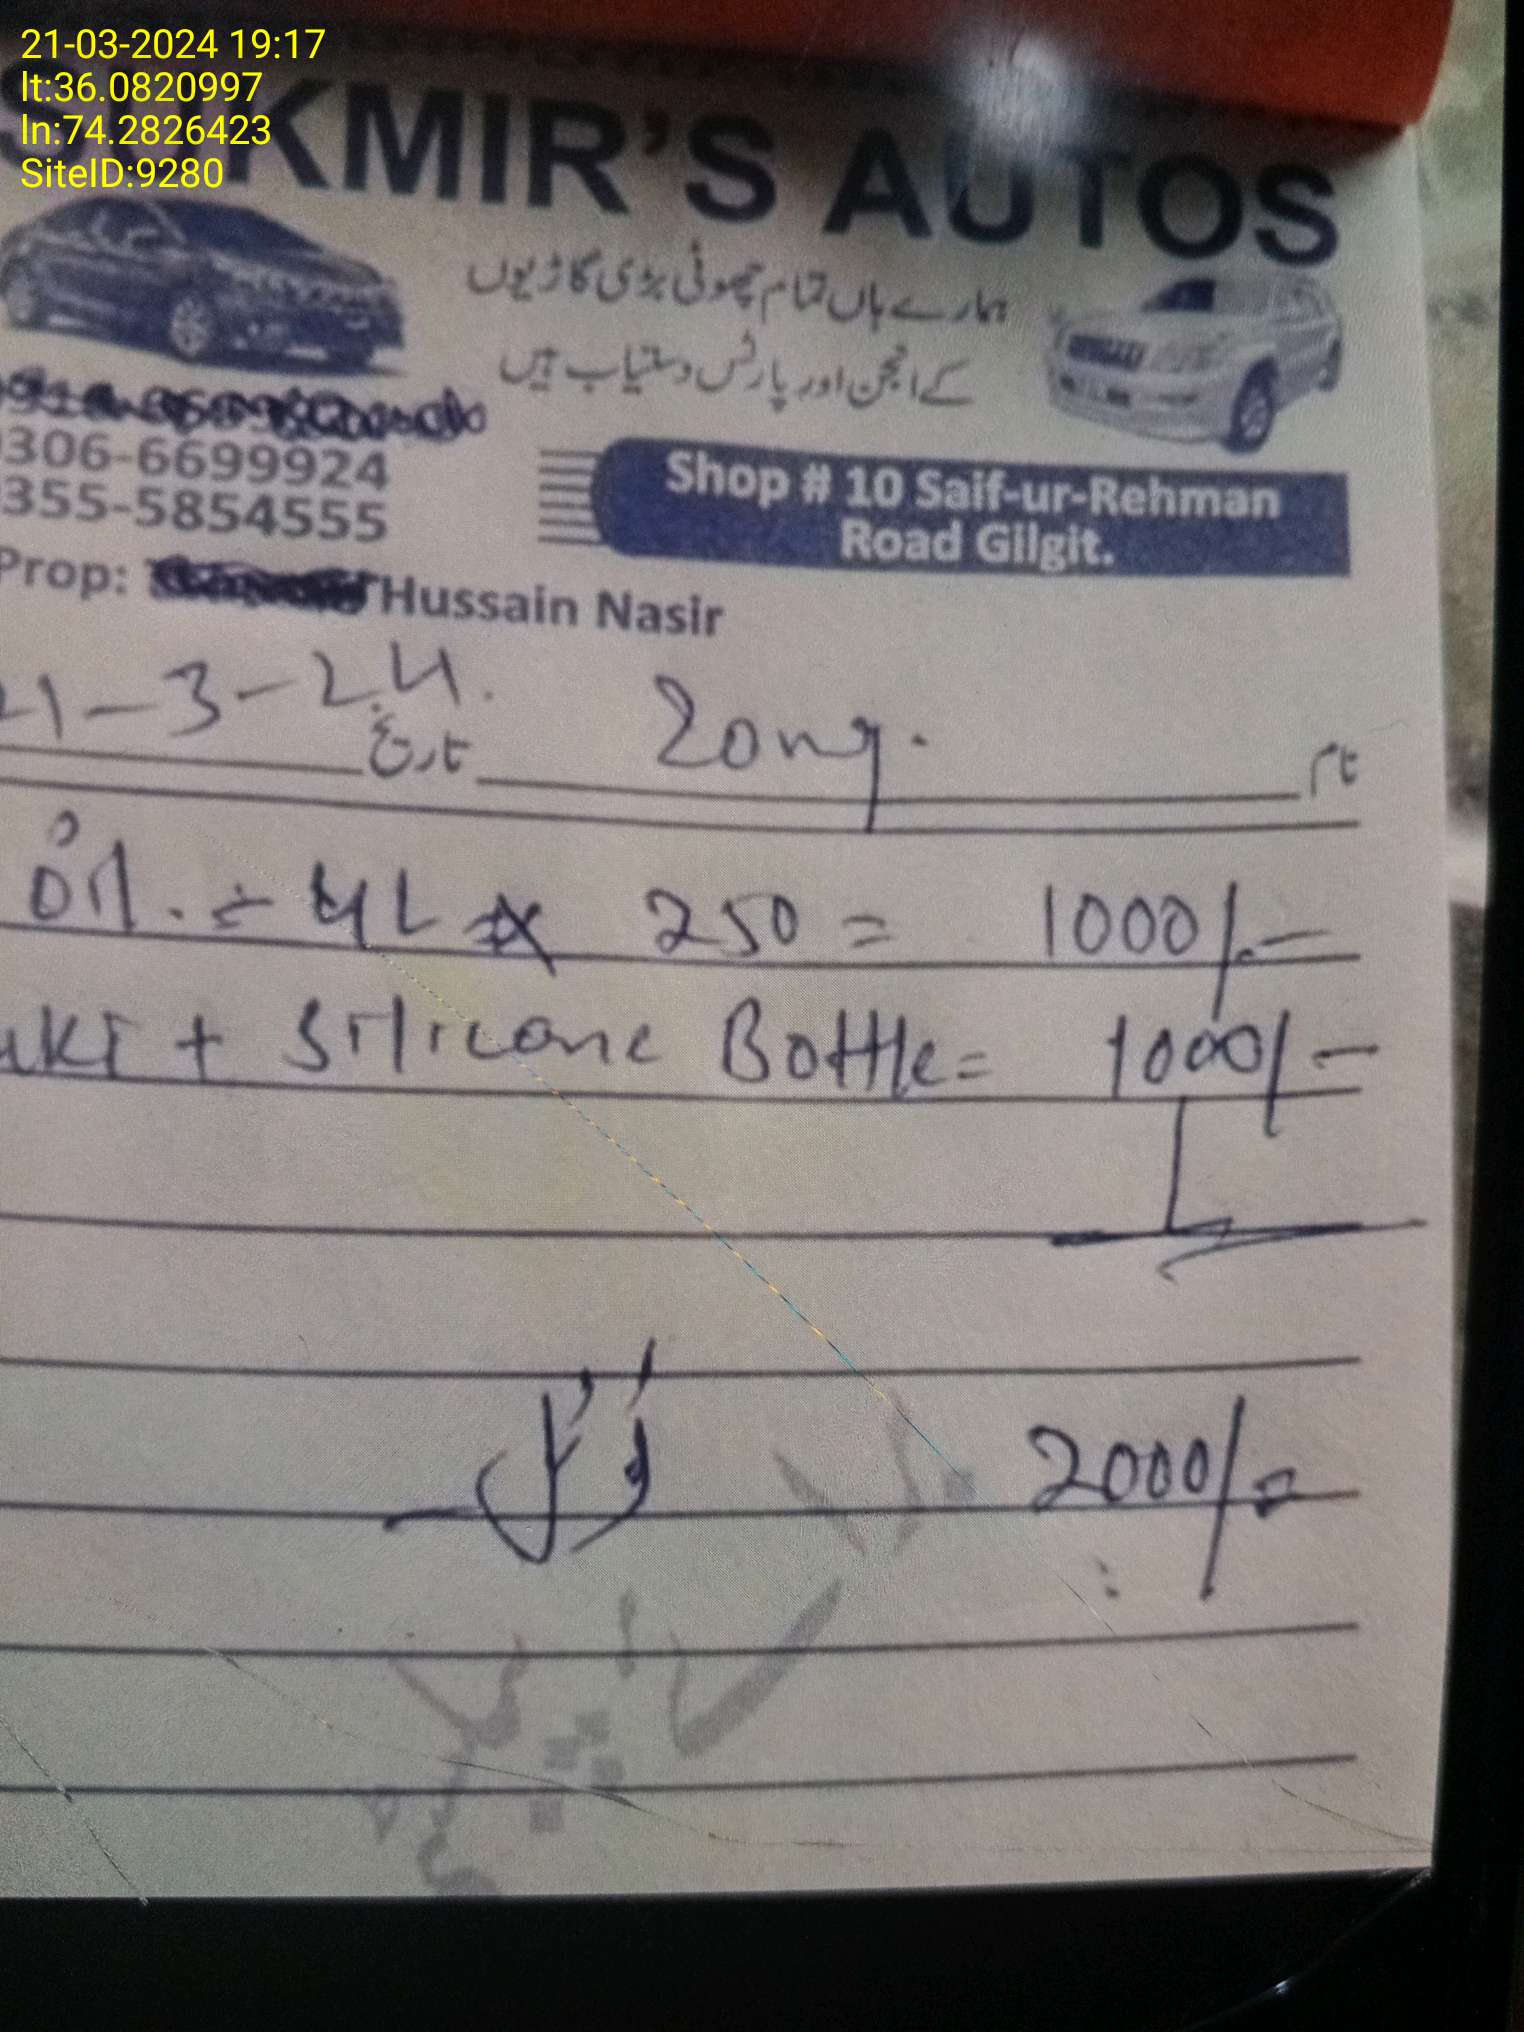 21-03-2024 19:17
lt:36.0820997
ln:74.2826423
SiteID:9280
KMIR'S AUTOS
ہمارے ہاں تمام چھوٹی بڑی گاڑیوں
کے انجن اور پارٹس دستیاب ہیں
306-6699924
355-5854555
Shop # 10 Saif-ur-Rehman
Road Gilgit.
Prop: Hussain Nasir
21-3-24. تاریخ Zong. نام
Oil. ÷ 4L x 250 = 1000/-
+ Silicone Bottle = 1000/-
ٹوٹل 2000/=